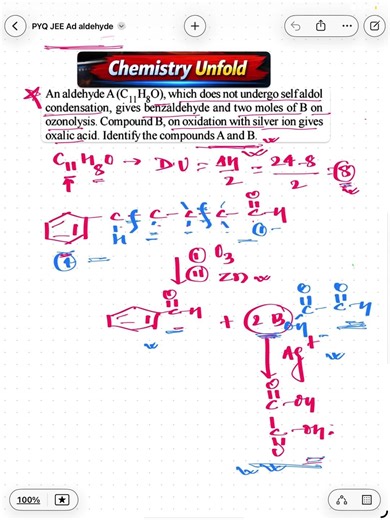 PYQ JEE Ad aldehyde
Chemistry Unfold
An aldehyde A (C₁₁H₈O), which does not undergo self aldol
condensation, gives benzaldehyde and two moles of B on
ozonolysis. Compound B, on oxidation with silver ion gives
oxalic acid. Identify the compounds A and B.
C₁₁H₈O → DU = ΔH/2 = 24-8/2 = 8
O
C - C - C - C - C - H
H
① O₃
② Zn
O O O
C - H + 2 B C - C - H
OH
Ag⁺
O
C - OH
C - OH
O
100%